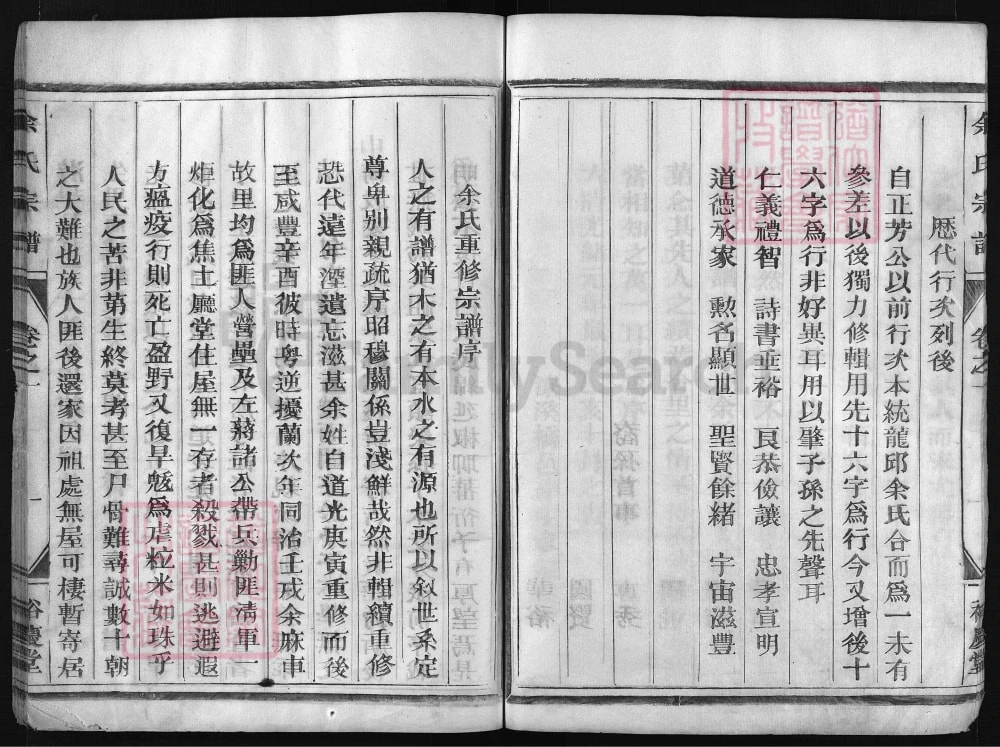 余氏宗譜 卷之一 裕慶堂
歷代行次列後
自正芳公以前行次本統龍邱余氏合而爲一未有
參差以後獨力修輯用先十六字爲行今又增後十
六字爲行非好異耳用以肇子孫之先聲耳
仁義禮智 詩書垂裕 良恭儉讓 忠孝宣明
道德承家 勲名顯世 聖賢餘緒 宇宙滋豐
余氏重修宗譜序
人之有譜猶木之有本水之有源也所以叙世系定
尊卑别親疏序昭穆關係豈淺鮮哉然非輯續重修
恐代遠年湮遺忘滋甚余姓自道光庚寅重修而後
至咸豐辛酉彼時粵逆擾蘭次年同治壬戌余麻車
故里均爲匪人營壘及左蔣諸公帶兵勦匪清軍一
炬化爲焦土廳堂住屋無一存者殺戮甚則逃避遐
方瘟疫行則死亡盈野又復旱魃爲虐粒米如珠乎
人民之苦非第生終莫考甚至尸骨難尋誠數十朝
之大難也族人匪後還家因祖處無屋可棲暫寄居
余氏宗譜 卷之一 一 裕慶堂
FamilySearch